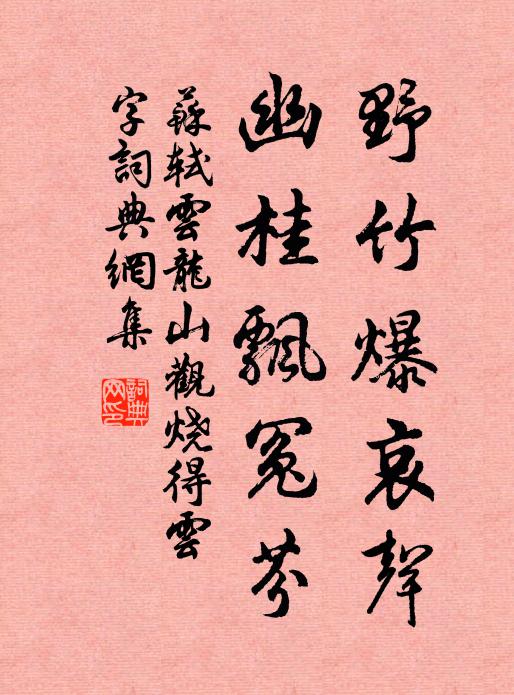 野竹爆哀聲
幽桂飄冤芬
蘇軾雲龍山觀烧得雲
字詞典網集
詞典
网印